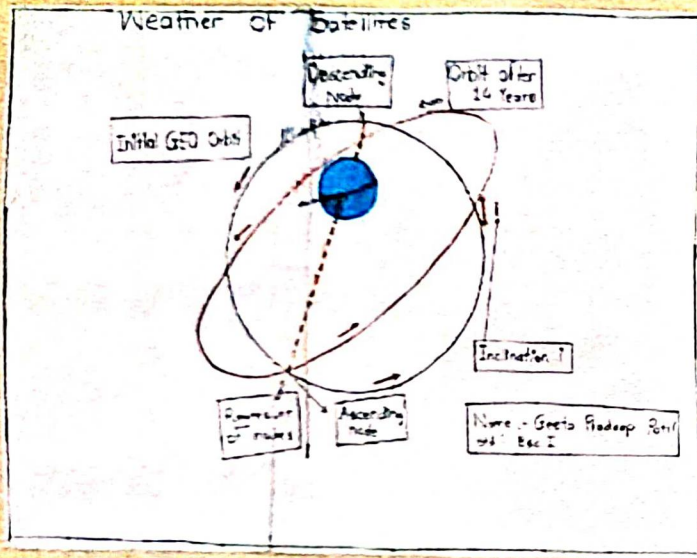 Weather of Satellites
Descending
Node
Orbit after
14 Years
Initial GEO Orbit
i
Inclination i
of nodes
Ascending
node
Name :- Geeta Pradeep Patil
std : Bsc I